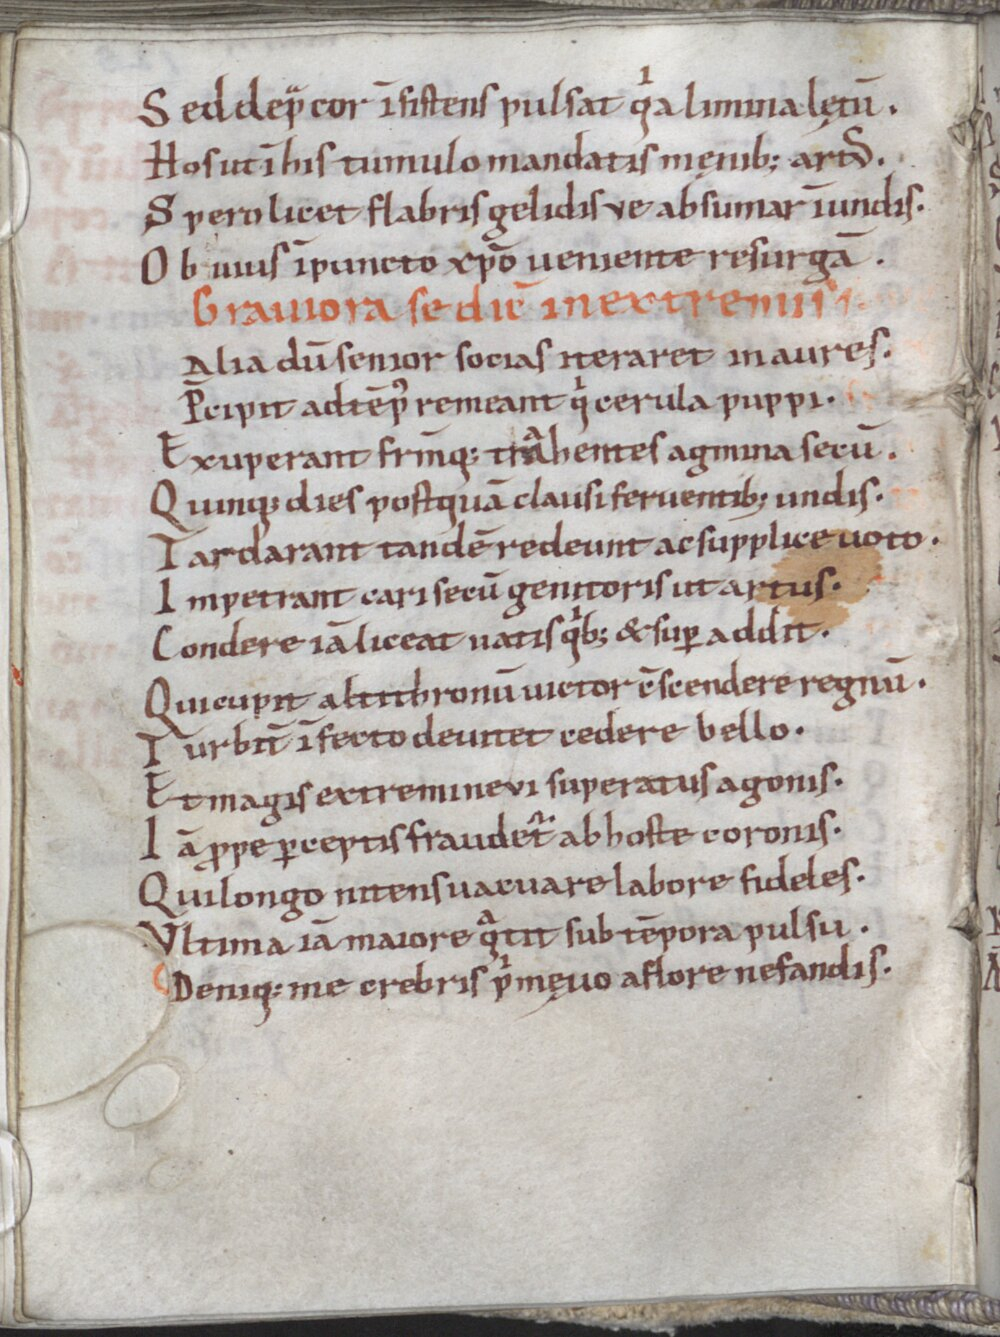 S ed dep̄cor īsistens pulsat qͥa limina lętū .
H os ut ī his tumulo mandatis męmb; art᷒ .
S pero licet flabris gelidis ve absumar īundis .
O buius īpuncto xp̄o ueniente resurgā .
Grauiora se dic̄ in extremis
Alia dū senior socias iteraret in aures .
P̄cipit ad tēp᷒ remeant qͥ cerula puppi .
E xuperant frīnq; trͣhentes agmina secū .
Q uinq; dies postquā clausi feruentib; undis .
T ardarant tandē redeunt ac supplice uoto .
I mpetrant cari secū genitoris ut artus .
C ondere iā liceat uatis qͥb; & suꝑ addit .
Q ui cupit altithronū uictor c̄scendere regnū .
T urbiū īfecto deuitet cedere bello .
E t magis extremi nevi superatus agonis .
I ā ꝓpe ꝑceptis fraudet᷑ ab hoste coronis .
Q ui longo nitens uacuare labore fideles .
V ltima iā maiore qͣtit sub tēpora pulsu .
Deniq; me crebris pͥmęuo a flore nefandis .